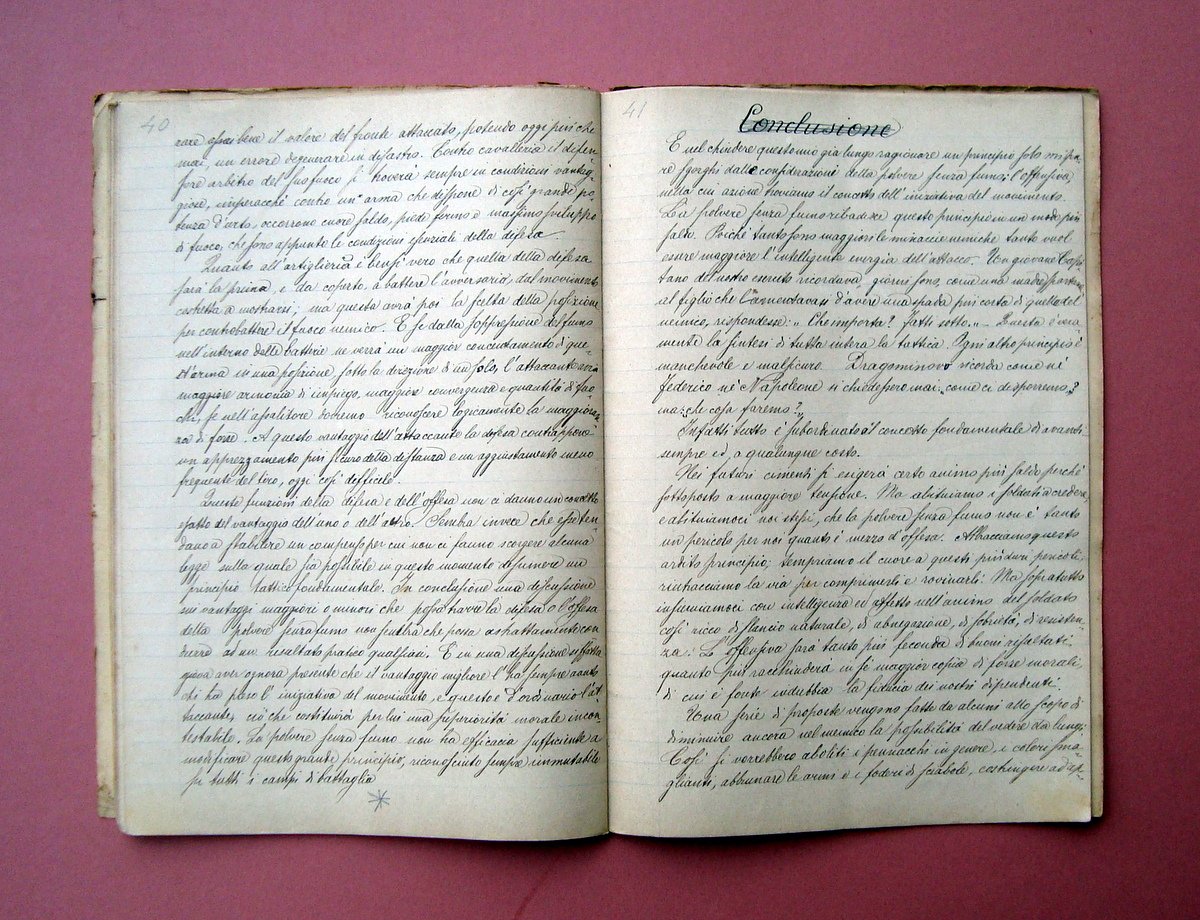 40
rare assai bene il valore del fronte attaccato, potendo oggi più che
mai, un errore degenerare in disastro. Contro cavalleria il difen-
sore arbitro del suo fuoco si troverà sempre in condizioni vantag-
giose, imperocché contro un'arma che dispone di così grande po-
tenza d'urto, occorrono cuore saldo, piede fermo e massimo sviluppo
di fuoco, che sono appunto le condizioni essenziali della difesa.
Quanto all'artiglieria è bensì vero che quella della difesa
sarà la prima, e da coperto, a battere l'avversaria, dal movimento
costretta a mostrarsi; ma questa avrà poi la scelta della posizione
per controbattere il fuoco nemico. E se dalla soppressione del fumo
nell'interno delle batterie ne verrà un maggior concentramento di que-
st'arma in una posizione sotto la direzione di un solo, l'attaccante avrà
maggiore armonia di impiego, maggiore convergenza e quantità di fuo-
chi, se nell'assalitore dovremo riconoscere logicamente la maggioran-
za di forze. A questo vantaggio dell'attaccante la difesa contrappone
un apprezzamento più sicuro della distanza e un aggiustamento meno
frequente del tiro, oggi così difficile.
Queste funzioni della difesa e dell'offesa non ci danno un concetto
esatto del vantaggio dell'uno o dell'altro. Sembra invece che esse ten-
dano a stabilire un compenso per cui non ci fanno scorgere alcuna
legge sulla quale sia possibile in questo momento desumere un
principio tattico fondamentale. In conclusione una discussione
sui vantaggi maggiori o minori che possa trarre la difesa o l'offesa
della polvere senza fumo non sembra che possa astrattamente con-
durre ad un resultato pratico qualsiasi. E in una discussione siffatta
giova aver ognora presente che il vantaggio migliore l'ha sempre avuto
chi ha preso l'iniziativa del movimento, e questo è d'ordinario l'at-
taccante, ciò che costituirà per lui una superiorità morale incon-
testabile. La polvere senza fumo non ha efficacia sufficiente a
modificare questo grande principio, riconosciuto sempre immutabile
su tutti i campi di battaglia
41
Conclusione
E nel chiudere questo mio già lungo ragionare un principio solo mi pa-
re sgorghi dalle considerazioni della polvere senza fumo: l'offensiva,
nella cui azione troviamo il concetto dell'iniziativa del movimento.
La polvere senza fumo ribadisce questo principio in un modo più
saldo. Poiché tanto sono maggiori le minaccie nemiche tanto vuol
essere maggiore l'intelligente energia dell'attacco. Un giovane Capi-
tano del nostro esercito ricordava, giorni sono, come una madre spartana
al figlio che lamentavasi d'avere una spada più corta di quella del
nemico, rispondesse: „ Che importa? Fatti sotto. „ Questa è vera-
mente la sintesi di tutta intera la tattica. Ogni altro principio è
manchevole e malsicuro. Dragomirow ricorda come né
Federico né Napoleone si chiedessero mai: come ci disporremo?
ma: che cosa faremo?
Infatti tutto è subordinato al concetto fondamentale di avanti
sempre ed, a qualunque costo.
Nei futuri cimenti si esigerà certo animo più saldo perché
sottoposto a maggiore tensione. Ma abituiamo i soldati a credere,
e abituiamoci noi stessi, che la polvere senza fumo non è tanto
un pericolo per noi quanto è mezzo d'offesa. Abbracciamo questo
ardito principio; tempriamo il cuore a questi più duri pericoli;
rintracciamo la via per comprimerli e rovinarli! Ma sopratutto
infiammiamoci con intelligenza ed affetto nell'animo del soldato
così ricco di slancio naturale, di abnegazione, di sobrietà, di resisten-
za. L'offensiva sarà tanto più feconda di buoni resultati
quanto più racchiuderà in sé maggior copia di forze morali,
di cui è fonte indubbia la fiducia dei nostri dipendenti.
Una serie di proposte vengono fatte da alcuni allo scopo di
diminuire ancora nel nemico la possibilità del vedere da lungi;
Così si vorrebbero aboliti i pennacchi in genere, i colori sma-
glianti, abbrunare le armi e i foderi di sciabole, costringere ad ap-